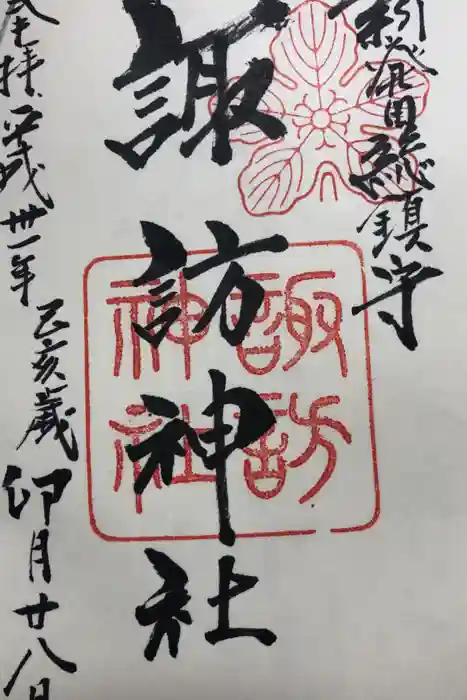 新発田総鎮守
諏訪神社
諏訪
神社
奉拝 平成卅一年 乙亥歳 卯月廿八日